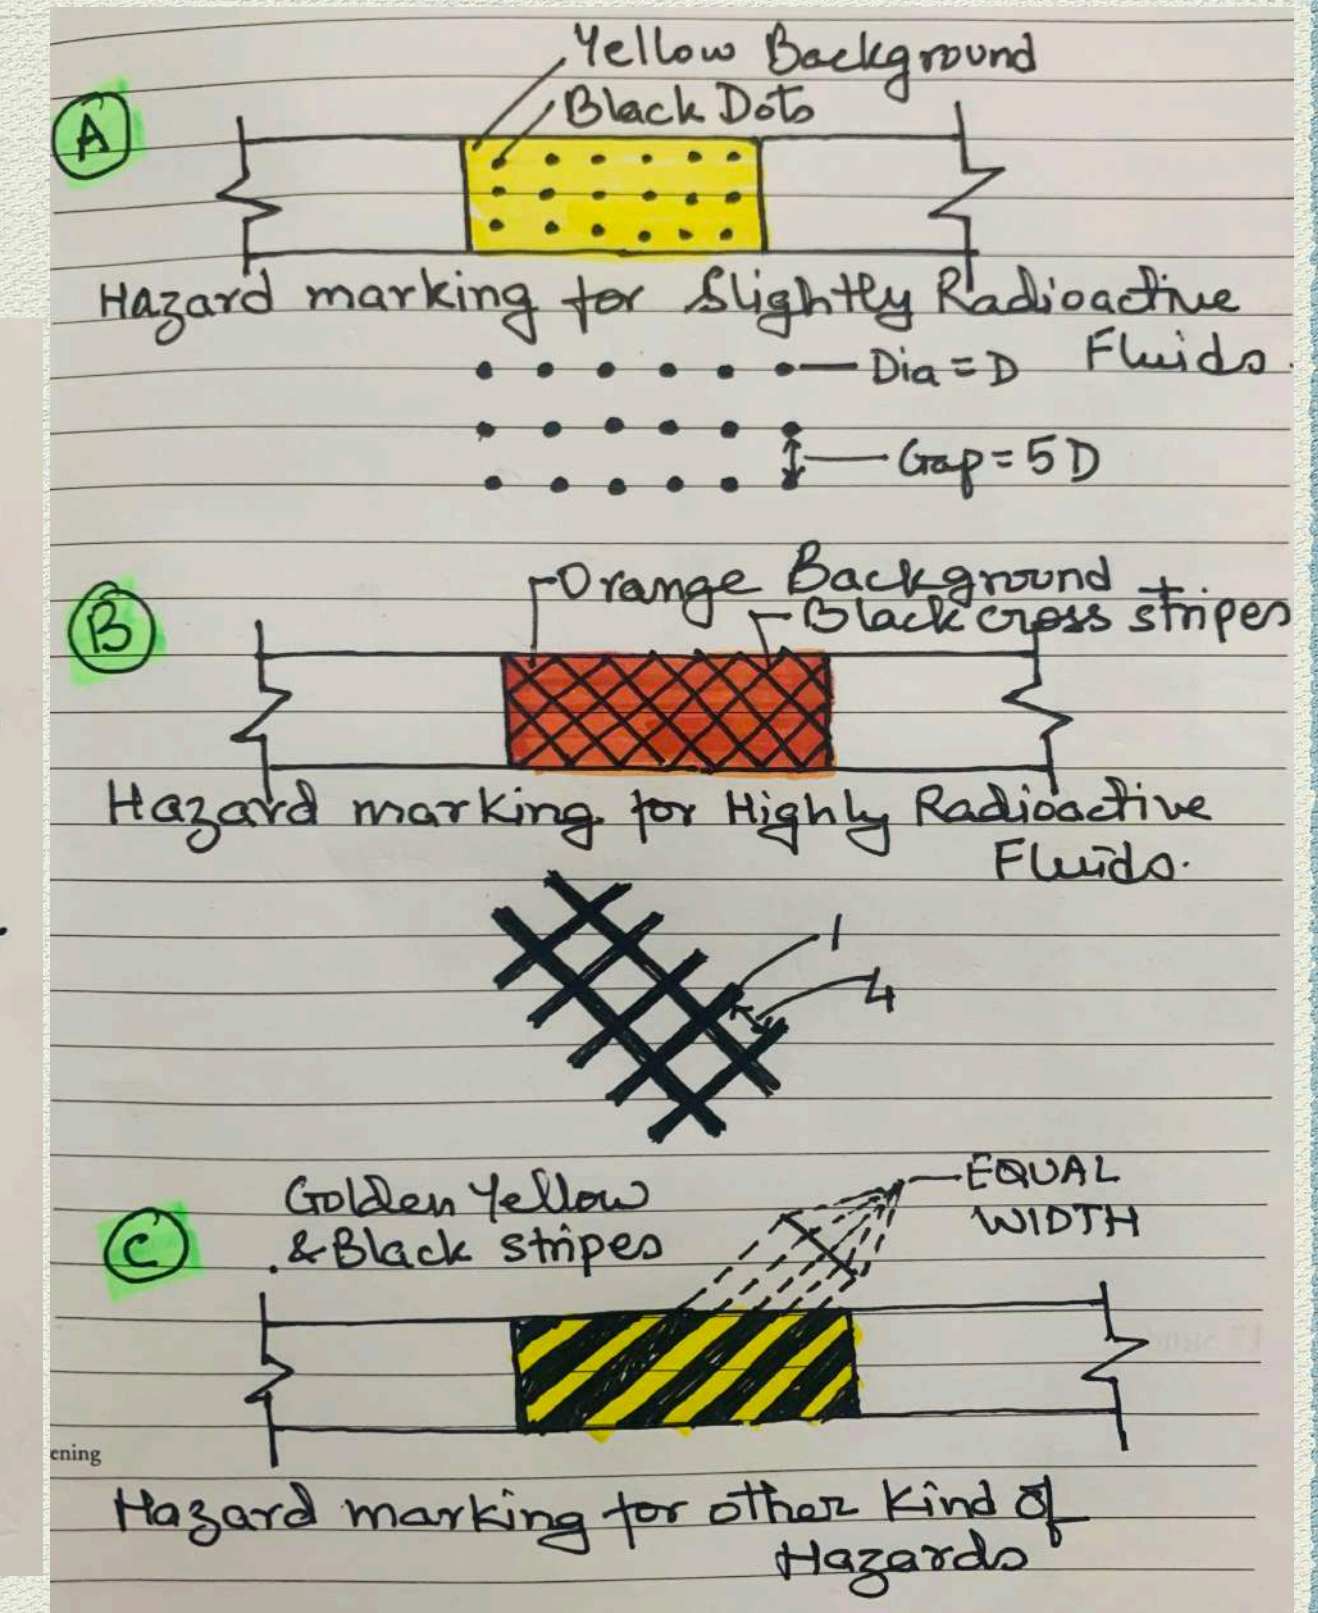 Yellow Background
Black Dots
A
Hazard marking for Slightly Radioactive
Fluids.
Dia = D
Gap = 5D
Orange Background
Black cross stripes
B
Hazard marking for Highly Radioactive
Fluids.
1
4
Golden Yellow
& Black stripes
C
EQUAL
WIDTH
ening
Hazard marking for other Kind of
Hazards